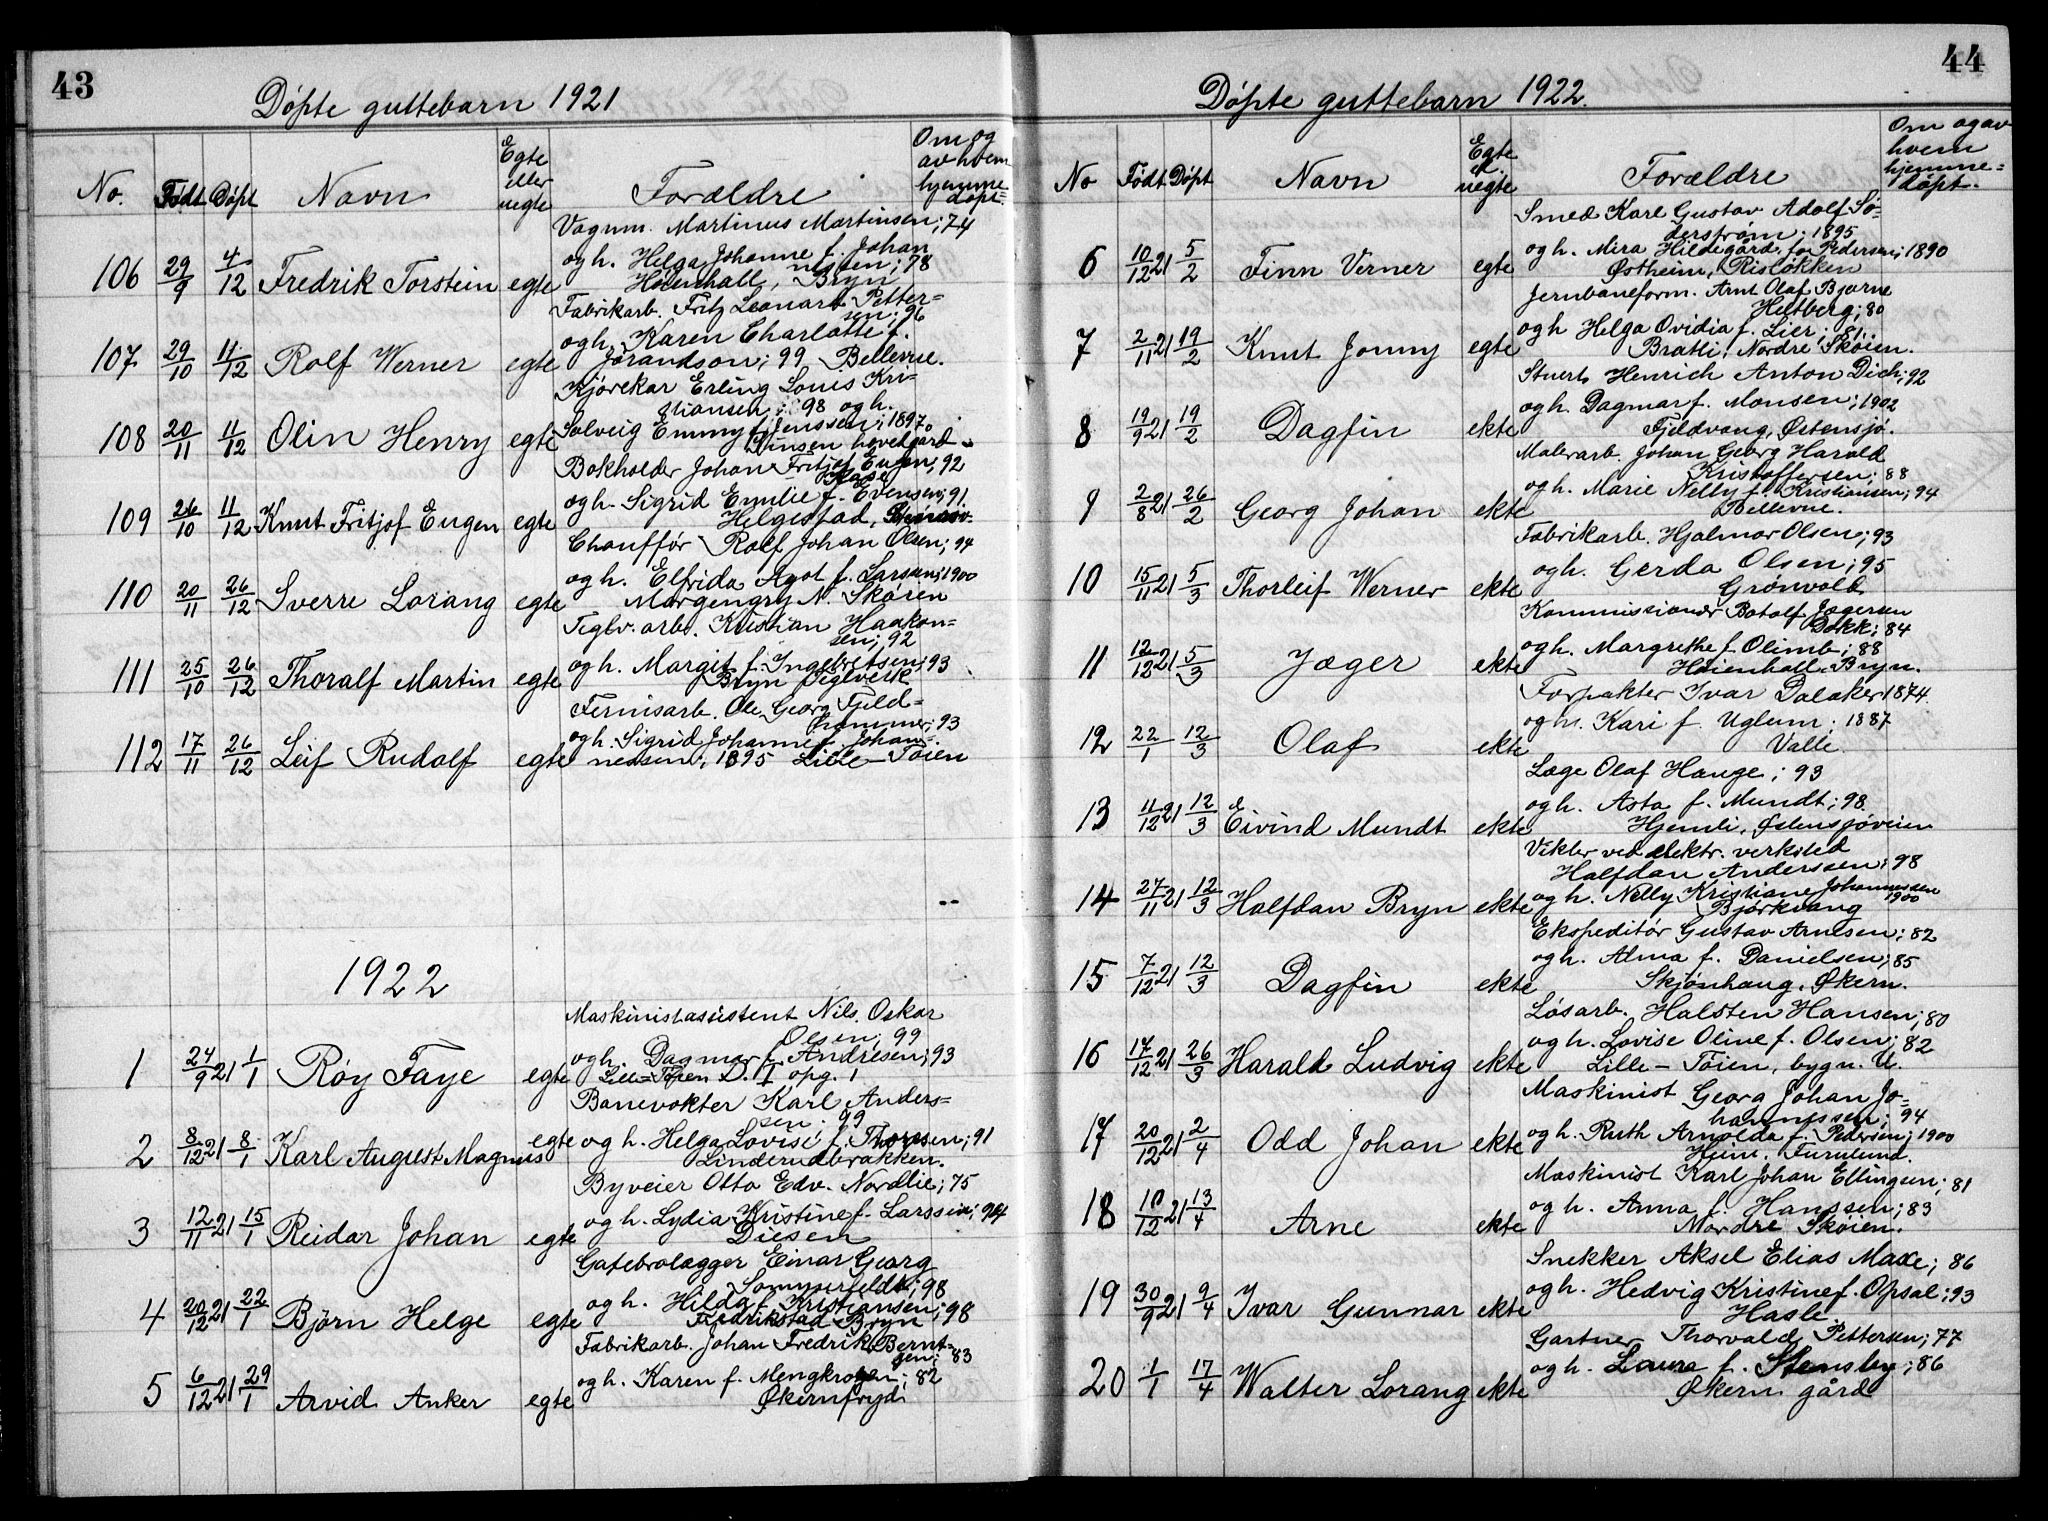 43
Døpte guttebarn 1921
No.
Født
Døpt
Navn
Egte
eller
uegte
Forældre
Om og
av hvem
hjemme
døpt.
Vognm. Martinus Martinsen; 74
106 29/9 4/12 Fredrik Torstein egte og h. Helga Johanne f. Johan
nesen; 78
Høienhall, Bryn
Fabrikarb. Fritz Leonard Petter=
sen; 96
107 29/10 11/12 Rolf Werner egte og h. Karen Charlotte f.
Jørandson; 99 Bellevue.
Kjørekar Erling Louis Kri-
stiansen; 98 og h.
108 20/11 11/12 Olin Henry egte Solveig Emmy f. Jenssen; 1897.
hovedgård
Bokholder Johan Fritjof Eugen, 92
109 26/10 11/12 Knut Fritjof Eugen egte og h. Sigrid Emilie f. Evensen; 91
Helgestad,
Chauffør Rolf Johan Olsen; 94
110 20/11 26/12 Sverre Lorang egte og h. Elfrida Agot f. Larsen; 1900
N. Skøien
Teglv. arb. Kristian Haakon=
sen; 92
111 25/10 26/12 Thoralf Martin egte og h. Margit f. Ingebretsen; 93
Bryn Teglverk
Fernisarb. Ole Georg Fjeld=
hammer; 93
112 17/11 26/12 Leif Rudolf egte og h. Sigrid Johanne f. Johan-
nessen, 1895 Lille-Tøien
1922
Maskinistassistent Nils Oskar
Olsen; 99
1 24/9 21 1/1 Røy Faye egte og h. Dagmar f. Andresen; 93
Lille-Tøien D. I opg. 1
Banevokter Karl Anders=
sen; 99
2 8/12 21 8/1 Karl August Magnus egte og h. Helga Lovise f. Thoresen; 91
Linderudbrakken.
Byveier Otto Edv. Nordlie; 75
3 12/11 21 15/1 Reidar Johan egte og h. Lydia Kristine f. Larssen; 94
Diesen
Gatebrolægger Einar Georg
Sommerfeldt; 98
4 20/12 21 22/1 Bjørn Helge egte og h. Hilda f. Kristiansen; 98
Fredrikstad Bryn
Fabrikarb. Johan Fredrik Bernt-
sen; 83
5 6/12 21 29/1 Arvid Anker egte og h. Karen f. Mengkrogen; 82
Økernfryd
44
Døpte guttebarn 1922.
No
Født
Døpt
Navn
Egte
el.
uegte
Forældre
Om og av
hvem
hjemme=
døpt.
Smed Karl Gustav Adolf Sø-
derstrøm; 1895
6 10/12 21 5/2 Finn Verner egte og h. Mira Hildegård, f. Pedersen; 1890
Østheim, Risløkken
Jernbaneform. Arnt Olaf Bjarne
Heltberg; 80
7 2/11 21 19/2 Knut Jonny egte og h Helga Ovidia f. Lier; 81.
Bratli, Nordre Skøien.
Stuert Henrich Anton Dich; 92
8 19/9 21 19/2 Dagfin ekte og h. Dagmar f. Monsen; 1902
Fjeldvang, Østensjø.
Malerarb. Johan Georg Harald
Kristoffersen; 88
9 2/8 21 26/2 Georg Johan ekte og h. Marie Nelly f. Kristiansen; 94
Bellevue.
Fabrikarb. Hjalmar Olsen; 93
10 15/11 21 5/3 Thorleif Werner ekte og h. Gerda Olsen; 95
Grønvold
Kommissionær Botolf Jægersen
Dokk; 84
11 12/12 21 5/3 Jæger ekte og h. Margrethe f. Olimb; 88
Høienhall Bryn.
Forpakter Ivar Dalaker 1874.
12 22/1 12/3 Olaf ekte og h. Kari f. Uglum. 1887
Valle.
Læge Olaf Hauge; 93
13 11/12 21 12/3 Eivind Mundt ekte og h. Asta f. Mundt; 98.
Hjemli, Østensjøveien
Vikler ved elektr. verksted
Halfdan Anderssen; 98
14 27/11 21 12/3 Halfdan Bryn ekte og h. Nelly Kristiane Johannessen
1900
Bjørkvang
Ekspeditør Gustav Arnesen; 82
15 7/12 21 12/3 Dagfin ekte og h. Alma f. Danielsen; 85
Skjønhaug, Økern.
Løsarb. Halsten Hansen; 80
16 17/12 21 26/3 Harald Ludvig ekte og h. Lovise Oline f. Olsen; 82
Lille-Tøien, bygn. U.
Maskinist Georg Johan Jo-
hannessen; 94
17 20/12 21 2/4 Odd Johan ekte og h. Ruth Arnolda f. Pedersen; 1900
Heim, Furulund.
Maskinist Karl Johan Ellingsen; 81
18 10/12 21 13/4 Arne ekte og h. Anna f. Hanssen; 83
Nordre Skøien.
Snekker Aksel Elias Maxe; 86
19 30/9 21 9/4 Ivar Gunnar ekte og h. Hedvig Kristine f. Opsal; 93
Hasle.
Gartner Thorvald Pettersen; 77
20 1/1 17/4 Walter Lorang ekte og h. Laura f. Stensby; 86
Økern gård